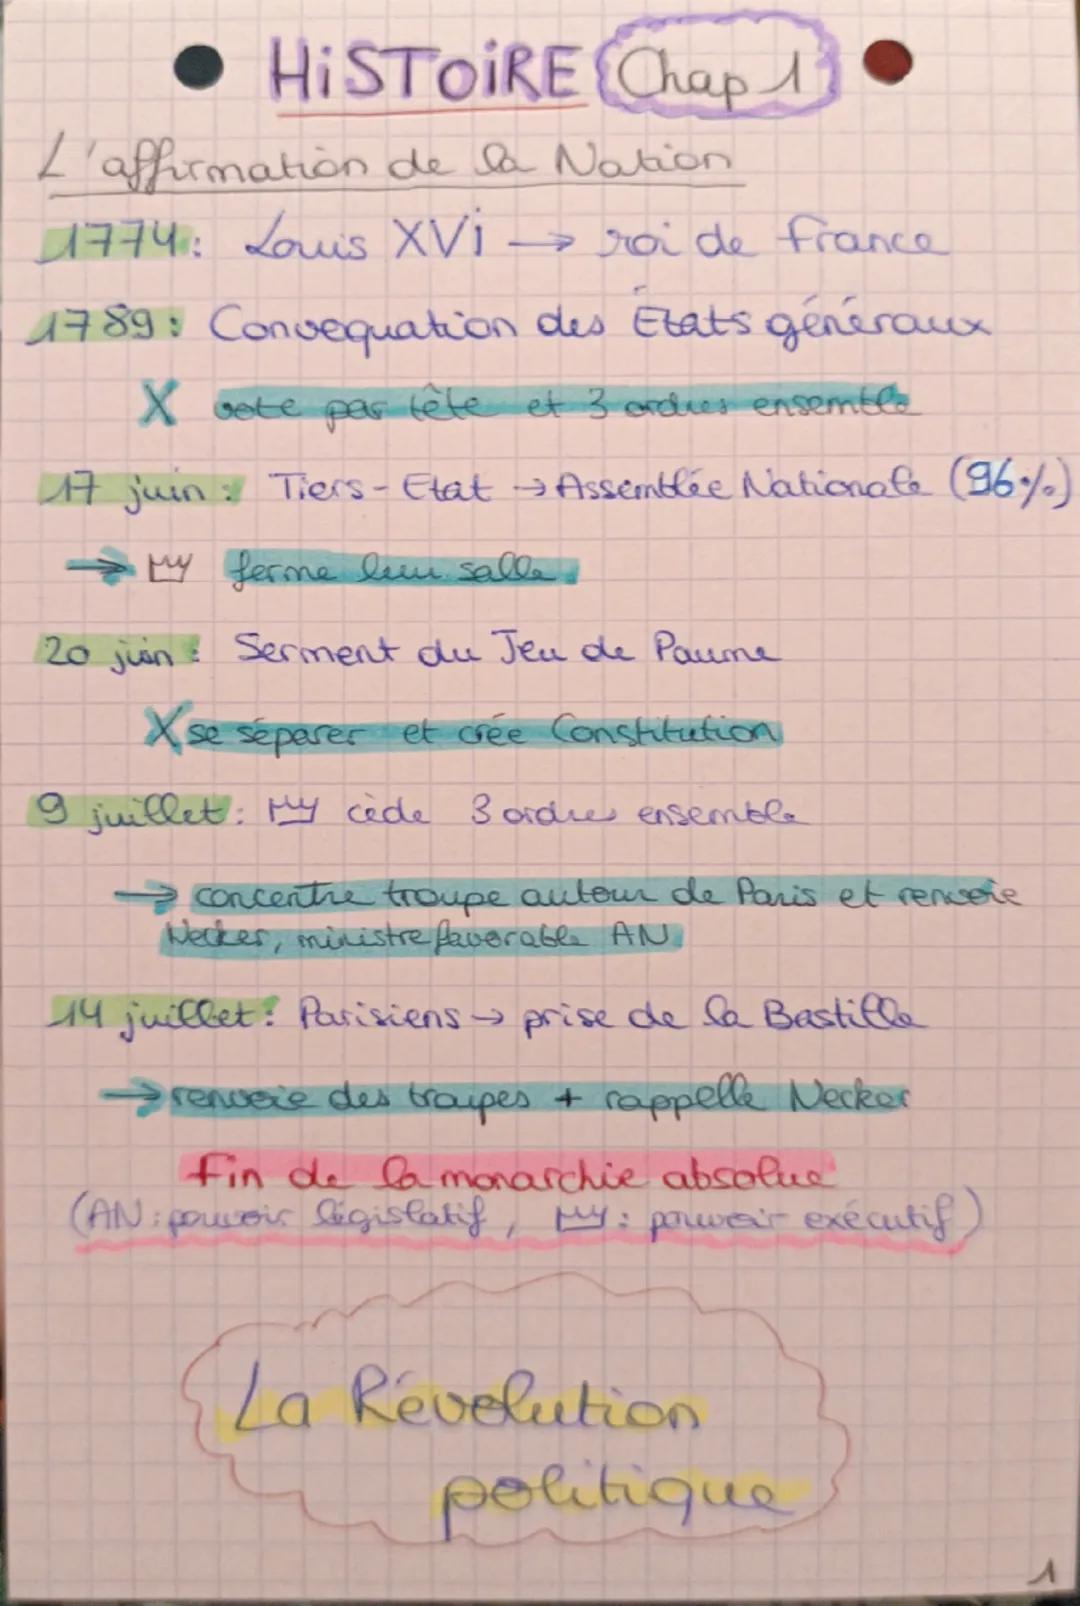 HiSTOiRE Chap 1
L'affirmation de la Nation
1774: Louis XVi → roi de france
1789: Convequation des États généraux
X vote par tête et 3 ordres ensemble
17 juin: Tiers-Etat → Assemblée Nationale (96%)
→ ferme leur salle
20 juin: Serment du Jeu de Paume
X se séparer et crée Constitution
9 juillet: cède 3 ordres ensemble
→ concentre troupe autour de Paris et renvoie
Necker, ministre favorable AN
14 juillet: Parisiens → prise de la Bastille
→ renvoie des troupes + rappelle Necker
fin de la monarchie absolue
(AN: pouvoir législatif, : pouvoir exécutif)
La Révolution
politique
1